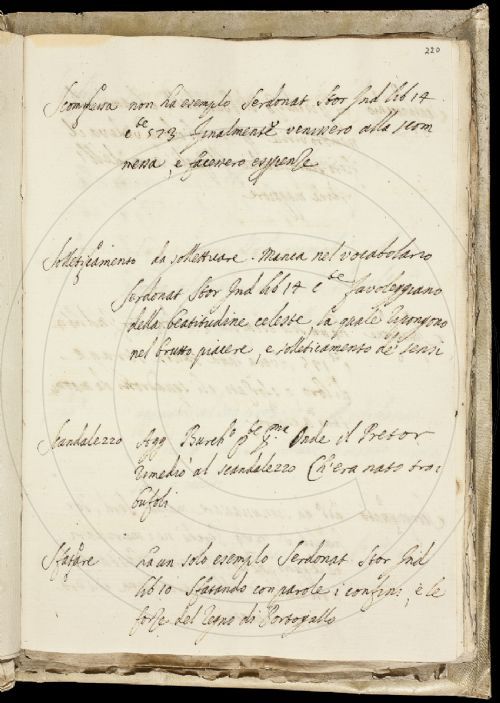 220
Scommessa non ha esemplo Serdonat Stor Ind lib 14
c 573 finalmente venissero alla scom
messa, e facessero esp
Solleticamento da solleticare. Manca nel vocabolario
Serdonat Stor Ind lib 14 c favoleggiano
della beatitudine celeste, la quale ripongono
nel brutto piacere, e solleticamento de sensi
Scandalezzo Agg Burch Onde il Pretor
rimediò al scandalezzo Ch'era nato tra i
bufoli
Sfatare ha un solo esemplo Serdonat Stor Ind
lib 10 sfatando con parole i confini, e le
forze del regno di Portogallo